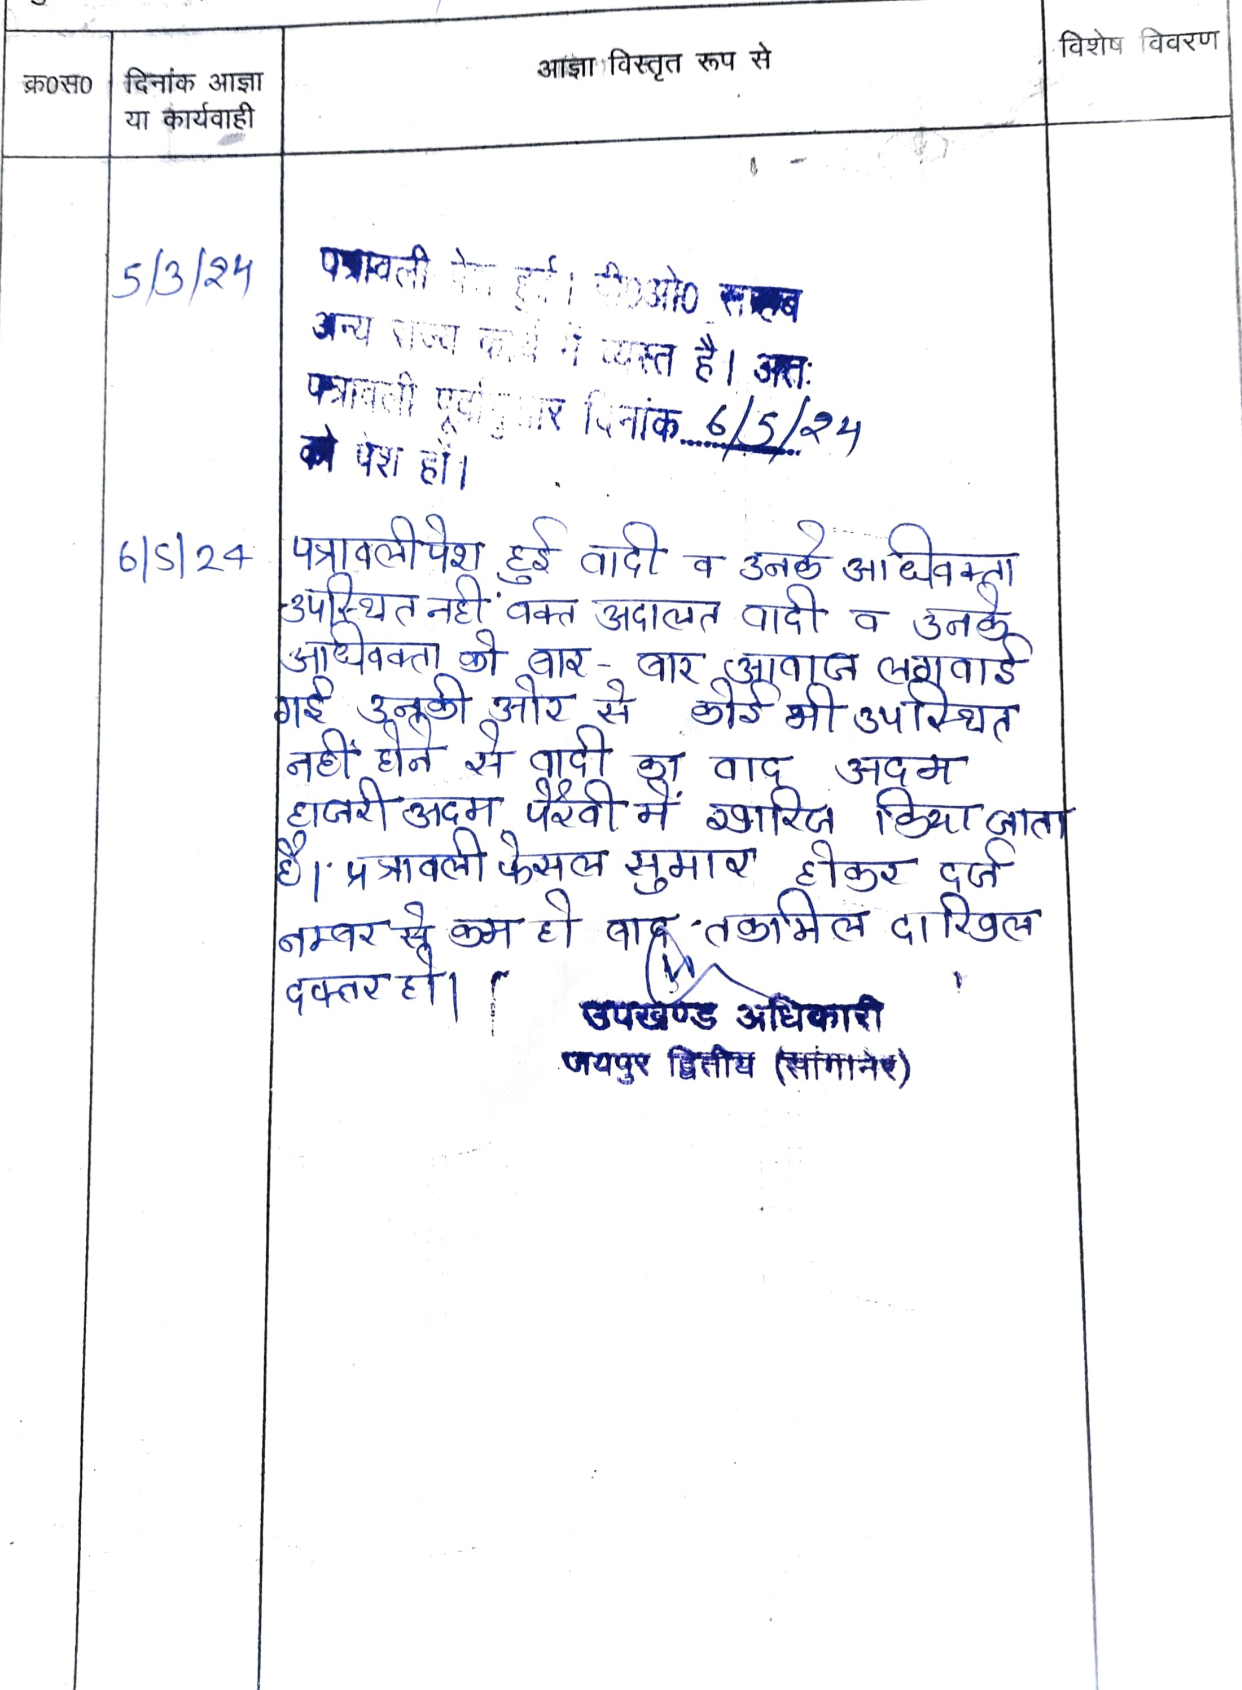 क्र0स0
दिनांक आज्ञा
या कार्यवाही
आज्ञा विस्तृत रूप से
विशेष विवरण
5/3/24
पत्रावली पेश हुई। पी0ओ0 साहब
अन्य राज्य कार्य में व्यस्त है। अतः
पत्रावली पूर्वानुसार दिनांक 6/5/24
को पेश हों।
6/5/24
पत्रावली पेश हुई वादी व उनके अधिवक्ता
उपस्थित नहीं वक्त अदालत वादी व उनके
अधिवक्ता को बार - बार आवाज लगवाई
गई उनकी ओर से कोई भी उपस्थित
नहीं होने से वादी का वाद अदम
हाजरी अदम पैरवी में खारिज किया जाता
है। पत्रावली फेसल सुमार होकर दर्ज
नम्बर से कम हो बाद तकमिल दाखिल
दफ्तर हो।
उपखण्ड अधिकारी
जयपुर द्वितीय (सांगानेर)